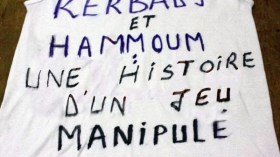 KERBADJ
ET
HAMMOUM
UNE HISTOIRE
D'UN JEU
MANIPULÉ